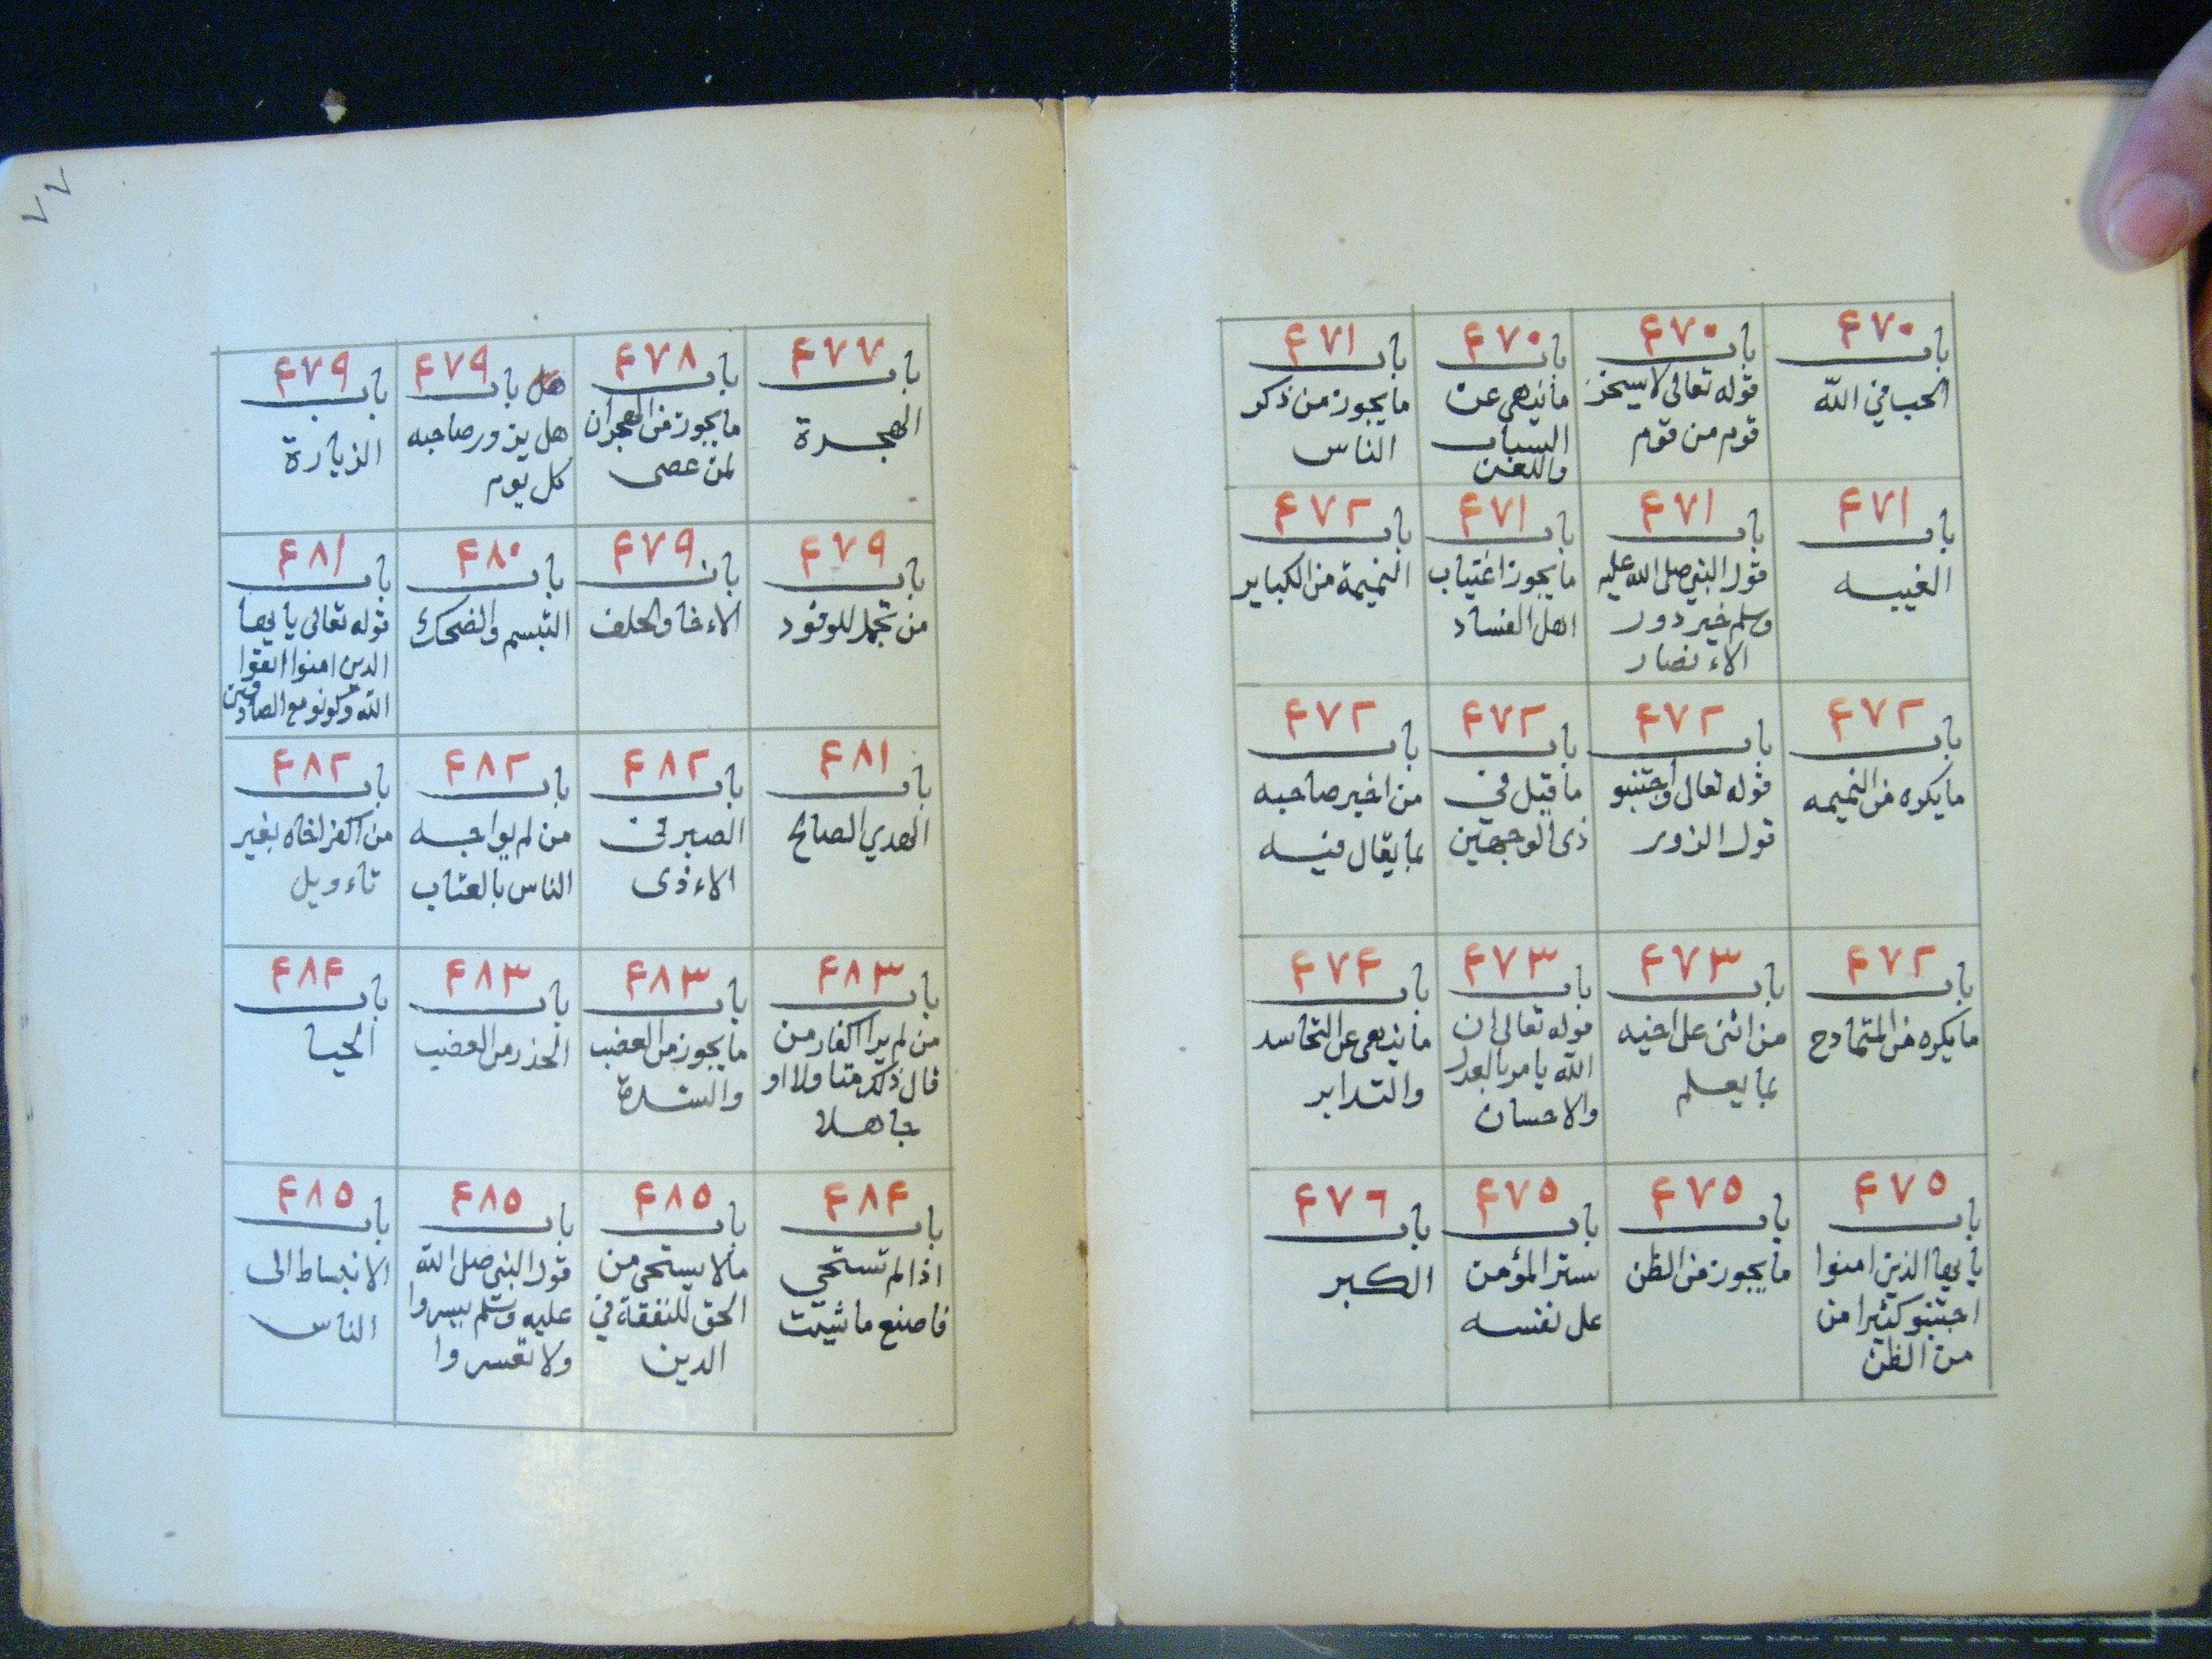 ٤٧٠ ٤٧٠ ٤٧٠ ٤٧١
باب باب باب باب
الحب في الله
قوله تعالى لا يسخر
قوم من قوم
ما ينهى عن
السباب
واللعن
ما يجوز من ذكر
الناس
٤٧١ ٤٧١ ٤٧١ ٤٧٢
باب باب باب باب
الغيبه
قول النبي صلى الله عليه
وسلم خير دور
الاءنصار
ما يجوز اغتياب
اهل الفساد
النميمة من الكباير
٤٧٢ ٤٧٢ ٤٧٢ ٤٧٢
باب باب باب باب
ما يكره من النميمه
قوله تعالى واجتنبو
قول الزور
ما قيل في
ذى الوجهين
من اخبر صاحبه
بما يقال فيه
٤٧٢ ٤٧٣ ٤٧٣ ٤٧٤
باب باب باب باب
ما يكره من المتمادح
من اثنى على اخيه
بما يعلم
قوله تعالى ان
الله يامر بالعدل
والاحسان
ما ينهى عن التحاسد
والتدابر
٤٧٥ ٤٧٥ ٤٧٥ ٤٧٦
باب باب باب باب
يا ايها الذين امنوا
اجتنبو كثيرا من
من الظن
ما يجوز من الظن
ستر المؤمن
على نفسه
الكبر
٧٧
٤٧٧ ٤٧٨ ٤٧٩ ٤٧٩
باب باب هل باب باب
الهجرة
ما يجوز من الهجران
لمن عصى
هل يزور صاحبه
كل يوم
الزيارة
٤٧٩ ٤٧٩ ٤٨٠ ٤٨١
باب باب باب باب
من تجمل للوفود
الاءخا والحلف
التبسم والضحك
قوله تعالى يا ايها
الدين امنوا اتقوا
الله وكونو مع الصادقين
٤٨١ ٤٨٢ ٤٨٢ ٤٨٢
باب باب باب باب
الهدي الصالح
الصبر في
الاءذى
من لم يواجه
الناس بالعتاب
من اكفر اخاه بغير
تاءويل
٤٨٣ ٤٨٣ ٤٨٣ ٤٨٤
باب باب باب باب
من لم ير اكفار من
قال ذلك متاولا او
جاهلا
ما يجوز من الغضب
والشدة
الحذر من الغضب
الحيا
٤٨٤ ٤٨٥ ٤٨٥ ٤٨٥
باب باب باب باب
اذا لم تستحي
فاصنع ما شيت
ما لا يستحى من
الحق للنفقة في
الدين
قول النبي صلى الله
عليه وسلم يسروا
ولا تعسروا
الانبساط الى
الناس